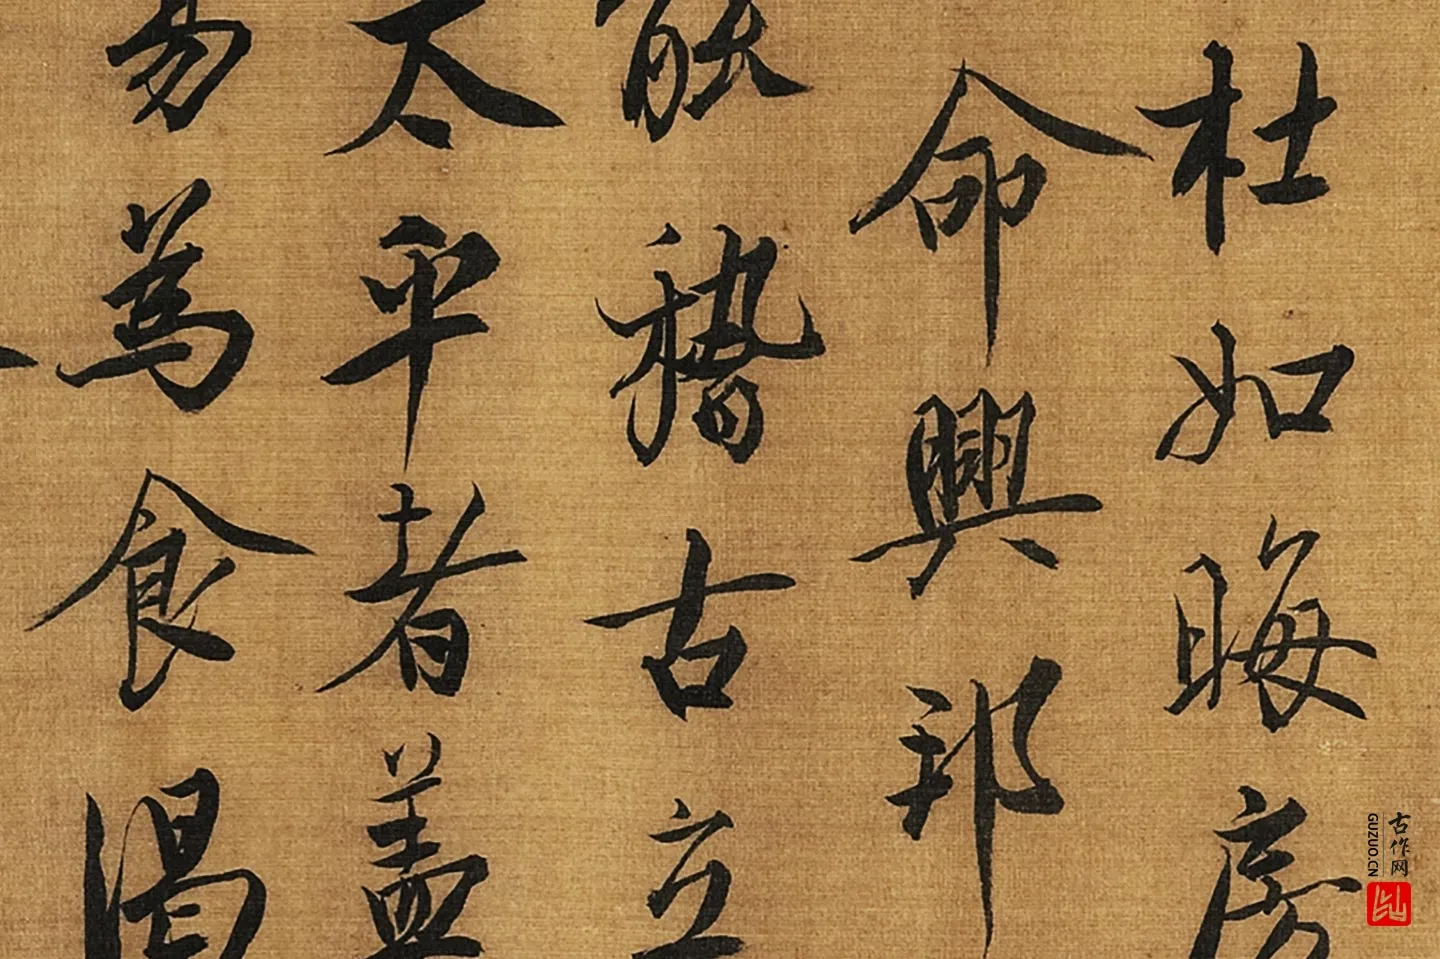 杜如晦房
命興邦
能稽古立
太平者蓋
易為食渴
古作网
GUZUO.CN